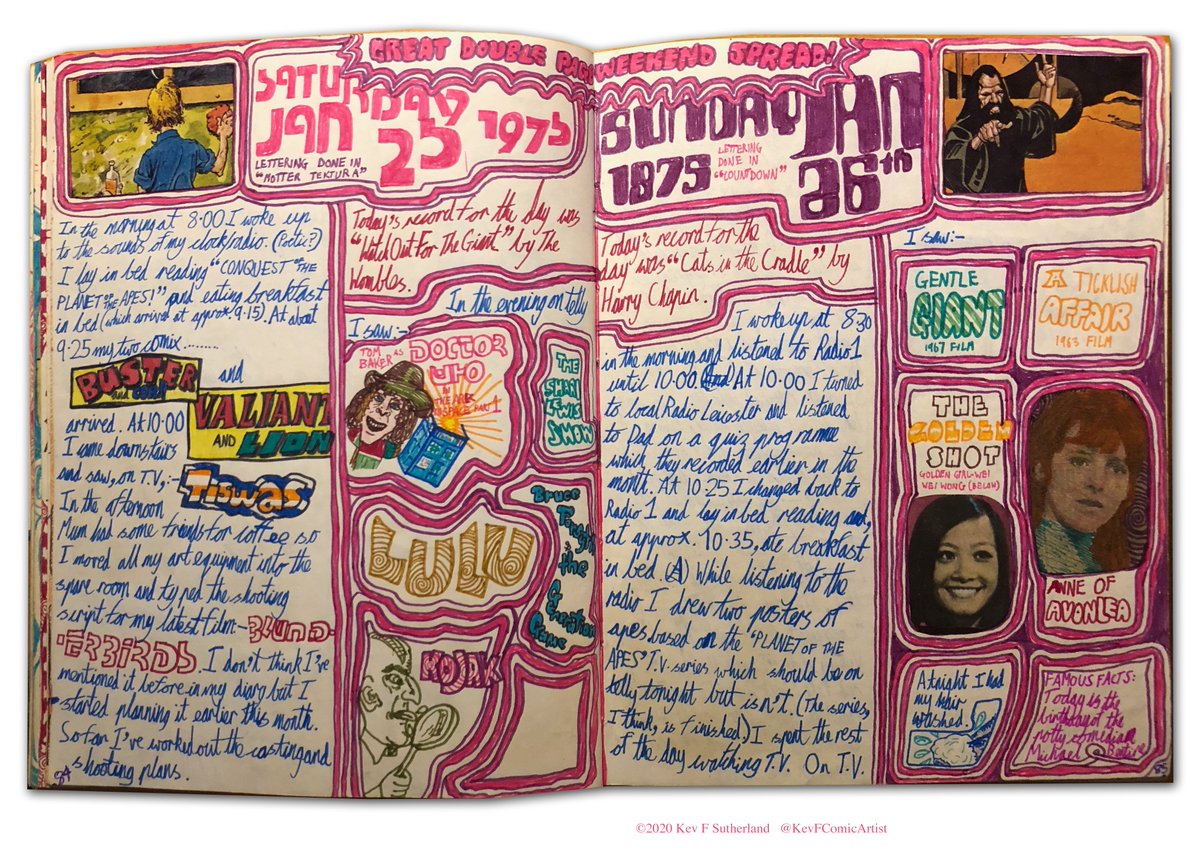 GREAT DOUBLE PAGE WEEKEND SPREAD!
SATURDAY
JAN 25 1975
LETTERING DONE IN
"MOTTER TEKTURA"
In the morning at 8:00 I woke up
to the sounds of my clock/radio. (Poetic?)
I lay in bed reading "CONQUEST OF THE
PLANET OF THE APES!" and eating breakfast
in bed (which arrived at approx 9·15). At about
9·25 my two comix........
BUSTER
AND
and
VALIANT
AND LION
arrived. At 10·00
I came downstairs
and saw, on T.V.,:-
TISWAS.
In the afternoon
Mum had some friends for coffee so
I moved all my art equipment into the
spare room and typed the shooting
script for my latest film:- BLUND-
·ERBIRDS. I don't think I've
mentioned it before in my diary but I
started planning it earlier this month.
So far I've worked out the casting and
shooting plans.
84
Today's record for the day was
"Watch Out For The Giant" by The
Wombles.
In the evening on telly
I saw:-
TOM
BAKER AS
DOCTOR
WHO
IN
THE ARK
IN SPACE PART 1
THE
SHARI
LEWIS
SHOW
LULU
Bruce
Forsyth
& the
Generation
Game
KOJAK
SUNDAY JAN
1975 26th
LETTERING
DONE IN
"COUNTDOWN"
Today's record for the
day was "Cats in the Cradle" by
Harry Chapin.
I woke up at 8·30
in the morning and listened to Radio 1
until 10·00. At 10·00 I turned
to local Radio Leicester and listened
to Dad on a quiz programme
which they recorded earlier in the
month. At 10·25 I changed back to
Radio 1 and lay in bed reading and,
at approx. 10·35, ate breakfast
in bed. (A) While listening to the
radio I drew two posters of
apes based on the "PLANET OF THE
APES" T.V. series which should be on
telly tonight but isn't. (The series,
I think, is finished.) I spent the rest
of the day watching T.V. On T.V.
I saw:-
GENTLE
GIANT
1967 FILM
A TICKLISH
AFFAIR
1963 FILM
THE
GOLDEN
SHOT
GOLDEN GIRL-WEI
WEI WONG (BELOW)
ANNE OF
AVONLEA
At night I had
my hair
washed.
FAMOUS FACTS:
Today is the
birthday of the
potty comedian
Michael Bentine
85
©2020 Kev F Sutherland @KevFComicArtist